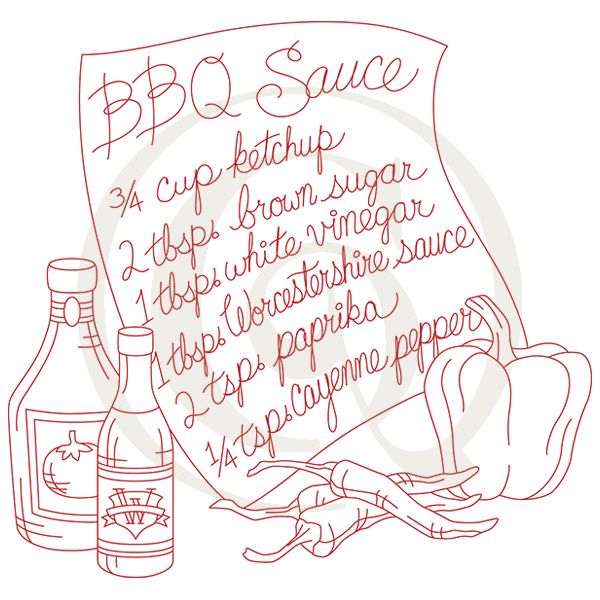 BBQ Sauce
3/4 cup ketchup
2 tbsp. brown sugar
1 tbsp. white vinegar
1 tbsp. Worcestershire sauce
2 tsp. paprika
1/4 tsp. cayenne pepper